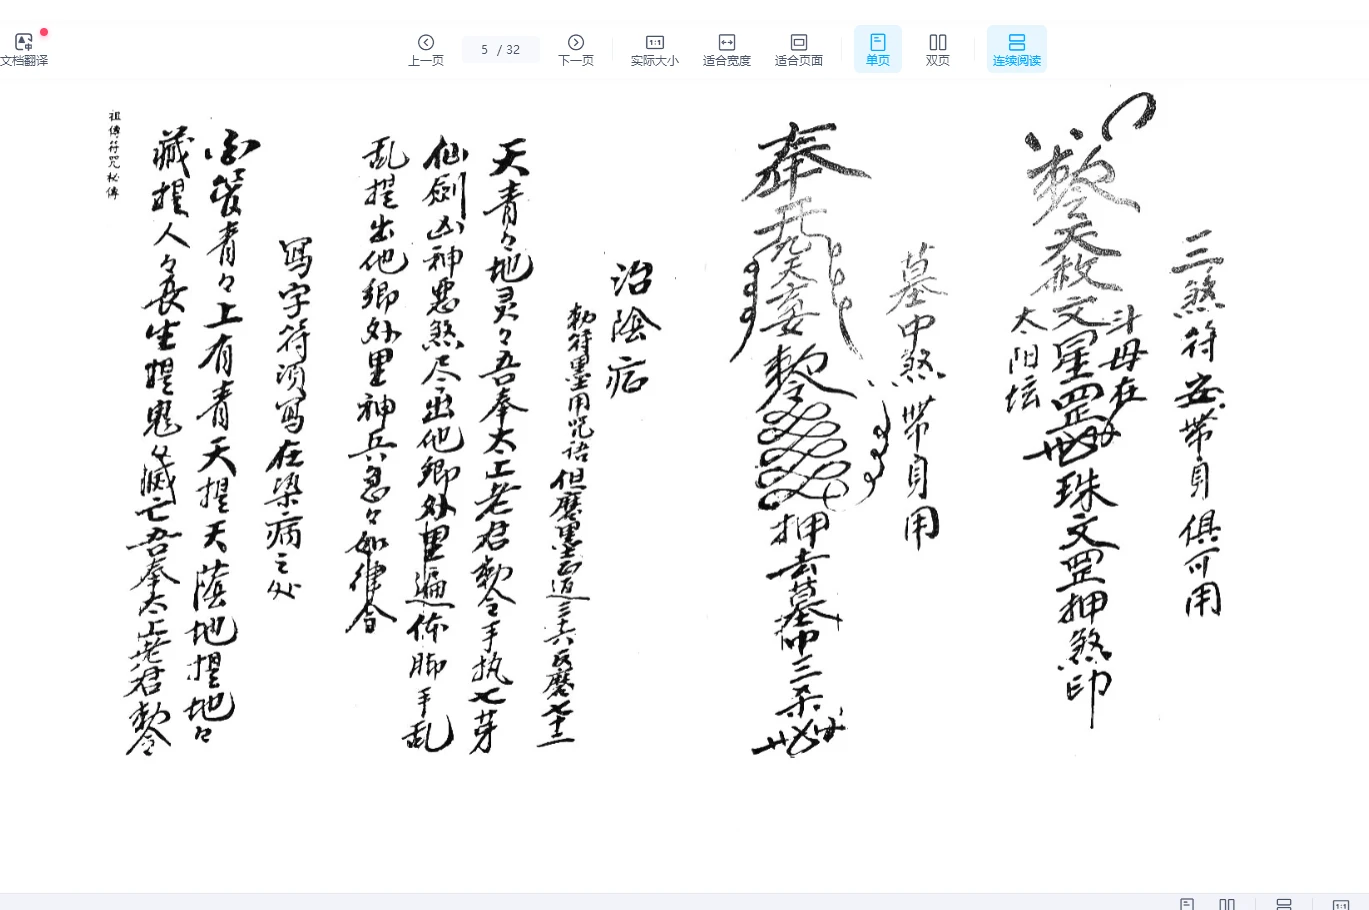 文档翻译
上一页
5 / 32
下一页
实际大小
适合宽度
适合页面
单页
双页
连续阅读
三煞符安带身俱可用
敕令天赦文星罡
斗母在
太阳坛
珠文罡押煞印
墓中煞带身用
奉
九天玄女
敕令
押去墓中三杀
治陰症
勅符墨用咒语但磨墨
天青々地灵々吾奉太上老君勅令手执七芽
仙劍凶神恶煞尽出他鄉外里遍体脚手乱
乱提出他鄉外里神兵急々如律令
写字符须写在染病之处
青々上有青天提天蔭地提地々
藏提人々長生提鬼々滅亡吾奉太上老君勅令
祖傳符咒秘傳